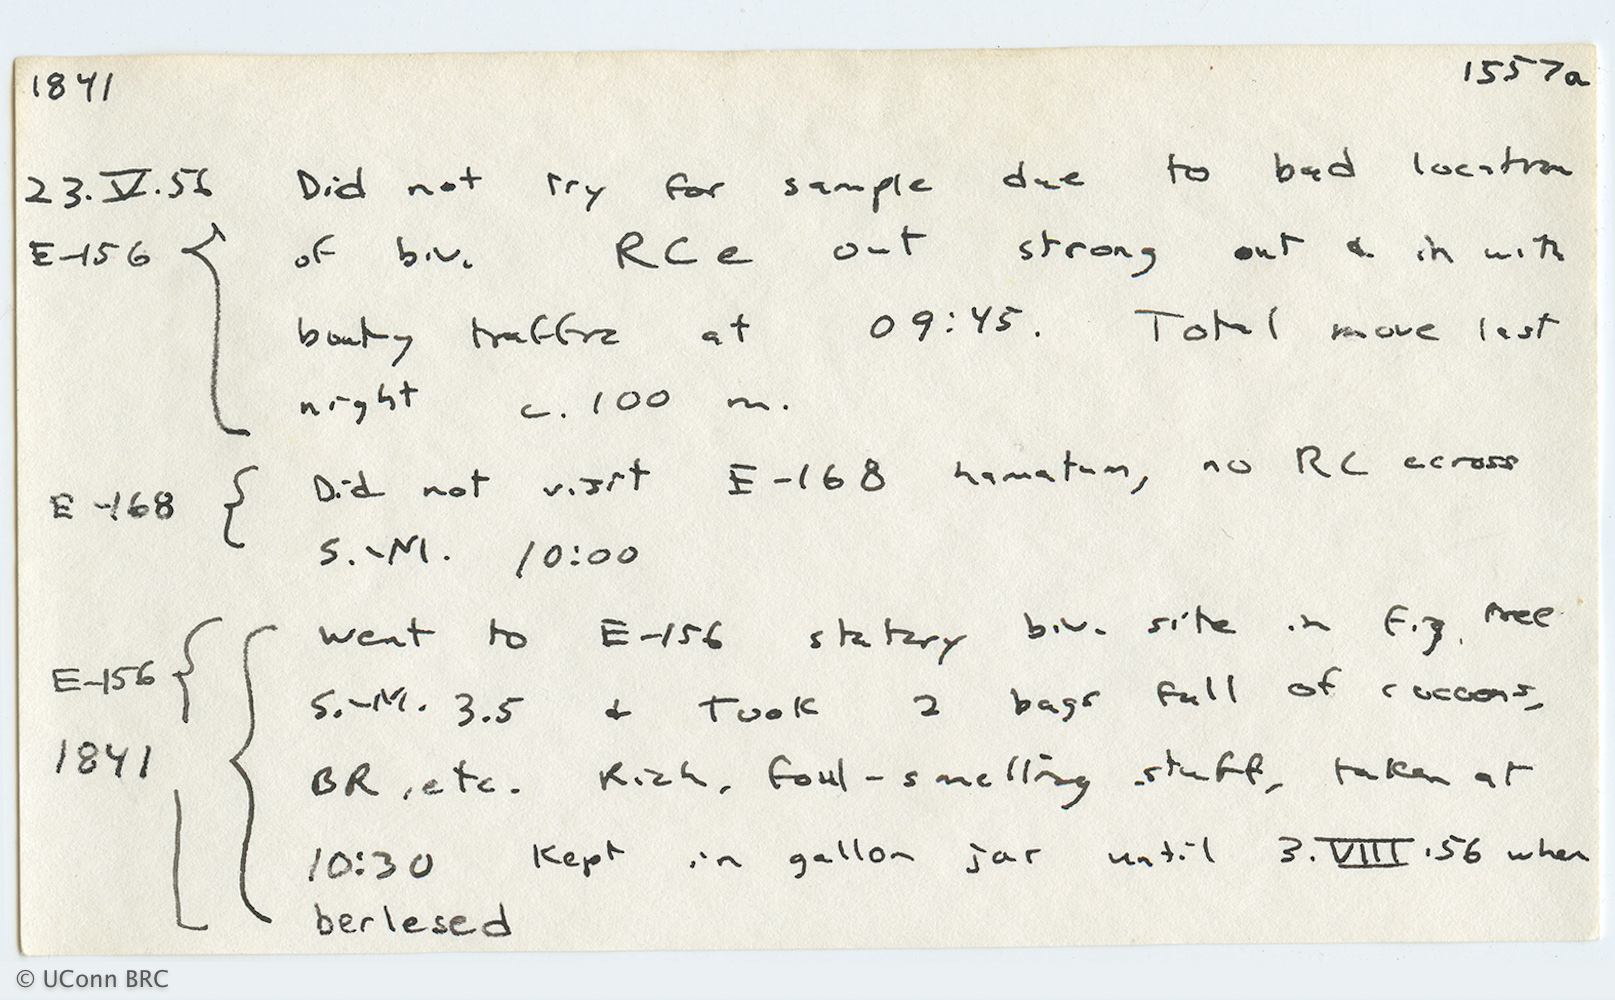 1841 1557a
23.V.56 Did not try for sample due to bad location
E-156 of biv. RC e out strong out & in with
booty traffic at 09:45. Total move last
night c. 100 m.
E-168 Did not visit E-168 hamatum, no RC across
S.-M. 10:00
Went to E-156 statary biv. site in fig tree
E-156 S.-M. 3.5 & took 2 bags full of cocoons,
1841 BR, etc. Rich, foul-smelling stuff, taken at
10:30 Kept in gallon jar until 3.VIII.56 when
berlesed
© UConn BRC